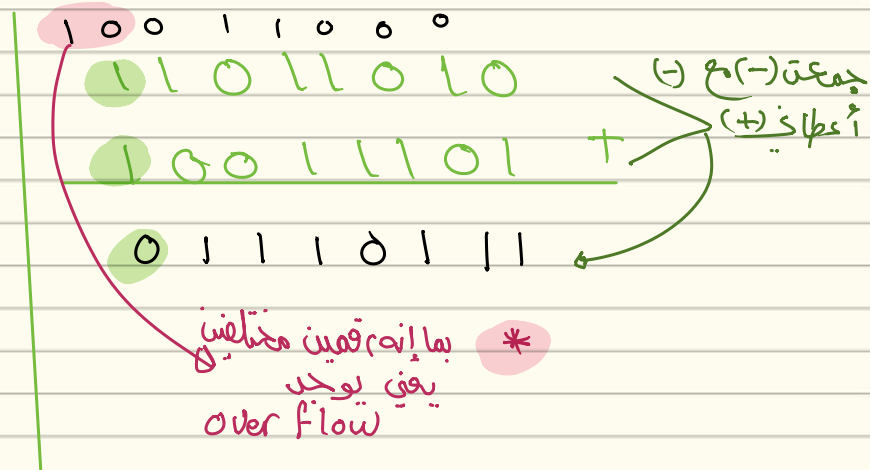 1 0 0 1 1 0 0 0
1 1 0 1 1 0 1 0
1 0 0 1 1 1 0 1 +
0 1 1 1 0 1 1 1
جمعت (-) مع (-)
أعطاني (+)
* بما إنه رقمين مختلفين
يعني يوجد
over flow